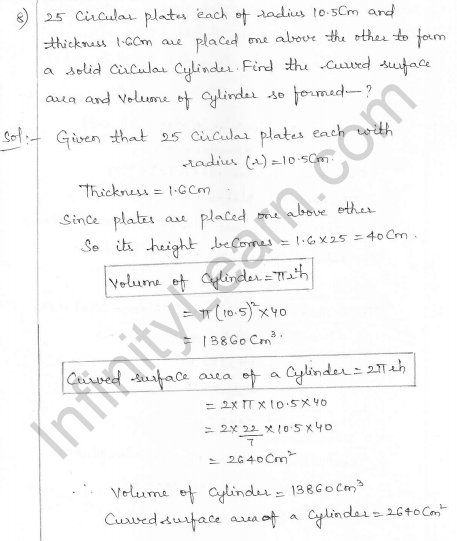 8) 25 Circular plates each of radius 10.5Cm and
thickness 1.6Cm are placed one above the other to form
a solid circular cylinder. Find the curved surface
area and volume of cylinder so formed—?
Sol:- Given that 25 circular plates each with
radius (r)=10.5Cm.
Thickness = 1.6Cm.
Since plates are placed one above other
So its height becomes = 1.6 x 25 = 40Cm.
Volume of Cylinder = πr²h
= π(10.5)² x 40
= 13860Cm³.
Curved surface area of a Cylinder = 2πrh
= 2 x π x 10.5 x 40
= 2 x 22/7 x 10.5 x 40
= 2640Cm²
∴ Volume of Cylinder = 13860Cm³
Curved surface area of a cylinder = 2640Cm²
InfinityLearn.com